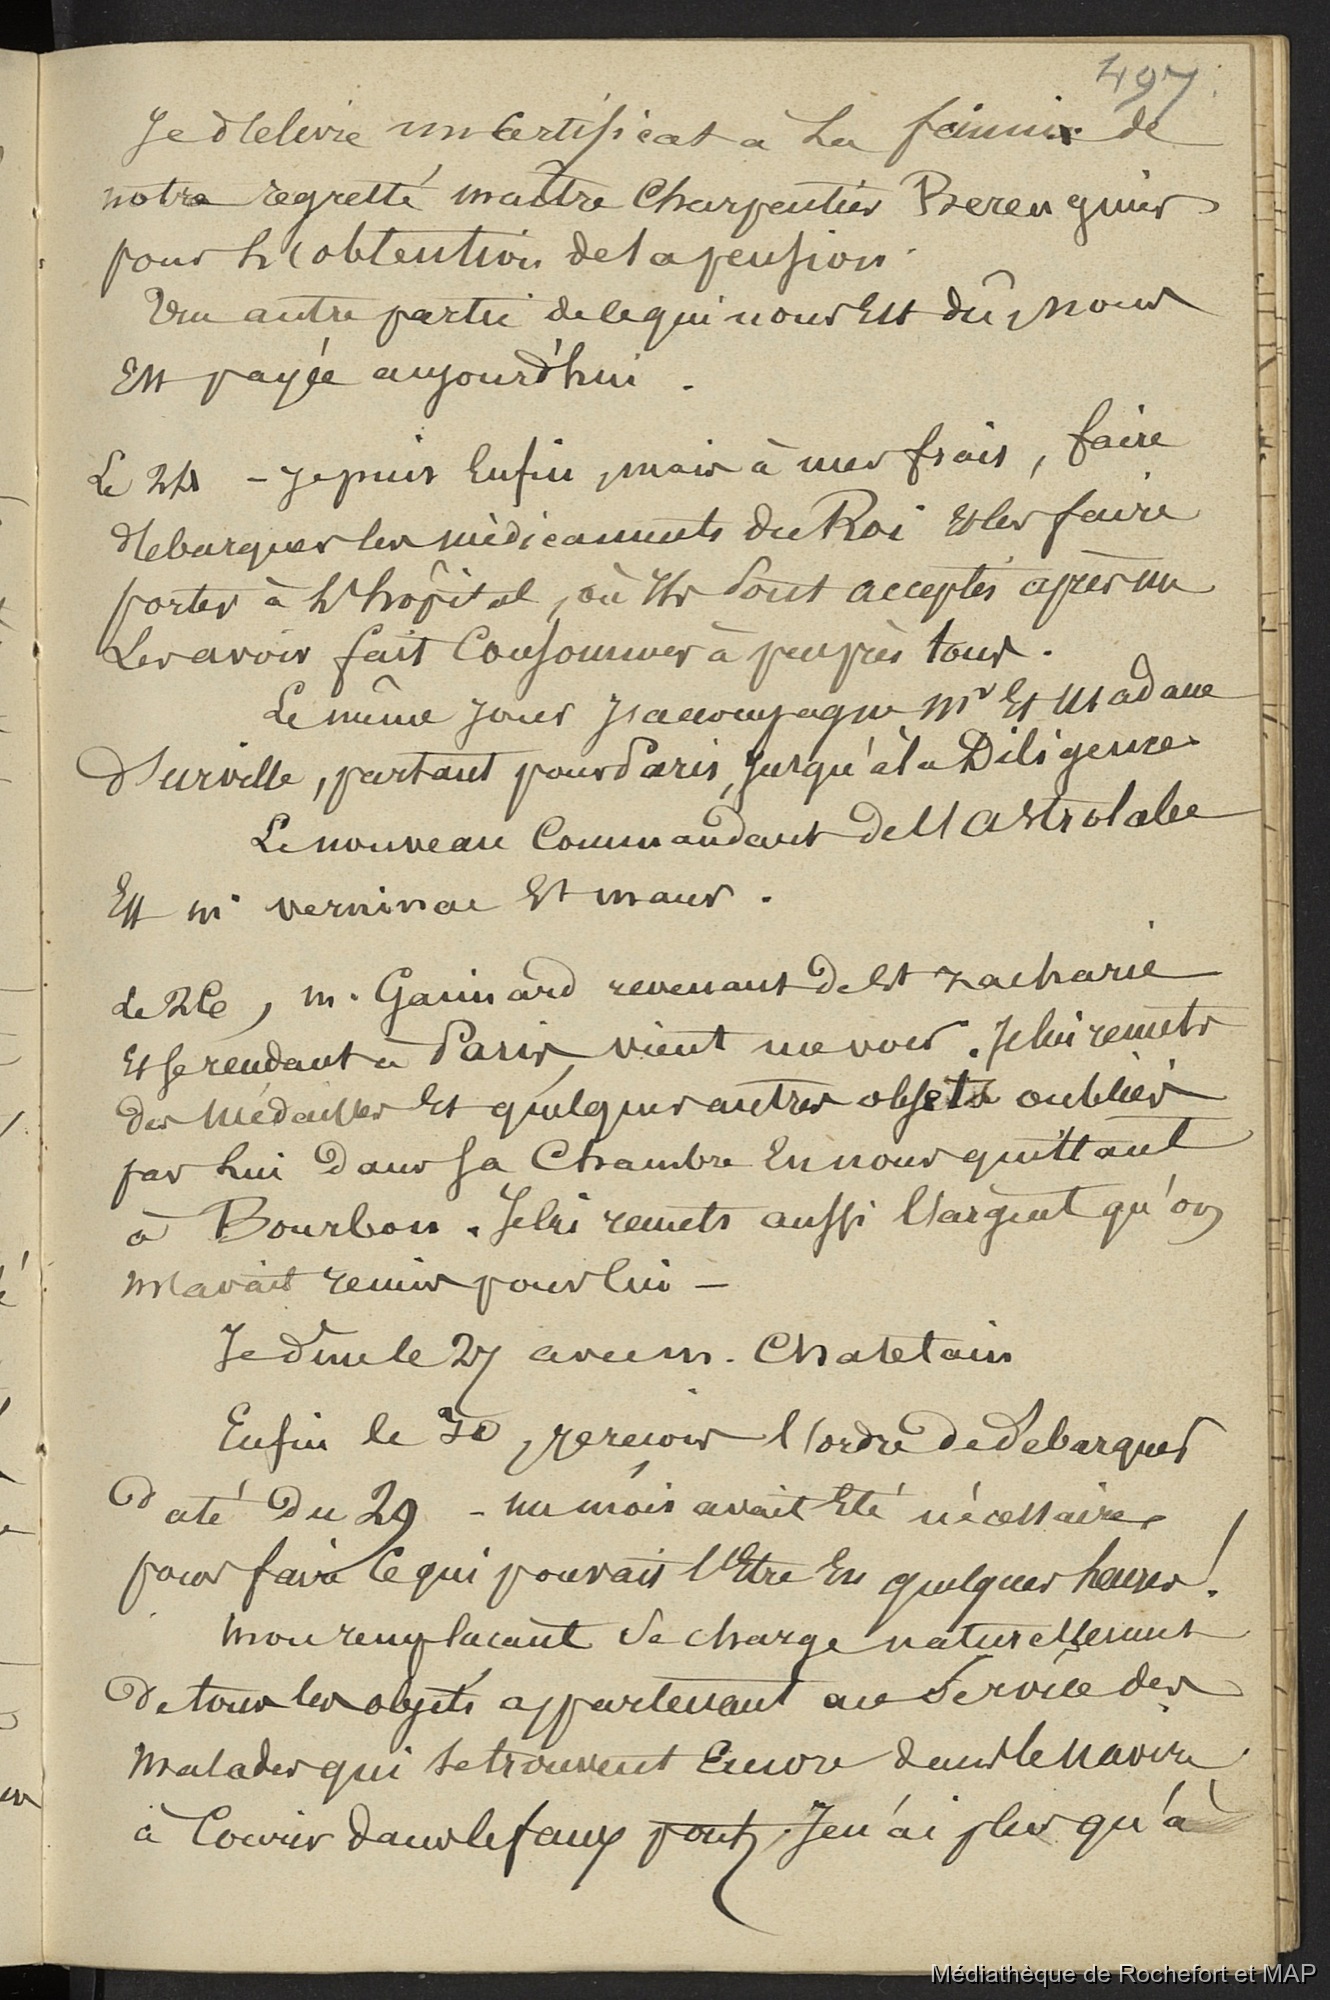 497
Je délivre un certificat à la femme de
notre regretté maître charpentier Berenguier
pour l'obtention de la pension.
Une autre partie de ce qui nous est dû, nous
est payée aujourd'hui.
Le 24 - je puis enfin, mais à mes frais, faire
débarquer les médicaments du Roi et les faire
porter à l'hôpital, où ils sont acceptés après
les avoir fait consommer à peu près tous.
Le même jour j'accompagne Mr et Madame
d'Urville, partant pour Paris, jusqu'à la Diligence
Le nouveau commandant de l'astrolabe
est mr verninac St maur.
Le 26, m. Gaimard revenant de St zacharie
et se rendant à Paris, vient me voir. Je lui remets
des médailles et quelques autres objets oubliés
par lui dans sa chambre en nous quittant
à Bourbon. Je lui remets aussi l'argent qu'on
m'avait remis pour lui -
Je dîne le 27 avec m. Chatelain
Enfin le 30, je reçois l'ordre de débarquer
daté du 29 - un mois avait été nécessaire
pour faire ce qui pouvait l'être en quelques heures!
Mon remplaçant se charge naturellement
de tous les objets appartenant au service des
malades qui se trouvent encore dans le navire
à Courier dans le faux pont. Je n'ai plus qu'à
Médiathèque de Rochefort et MAP